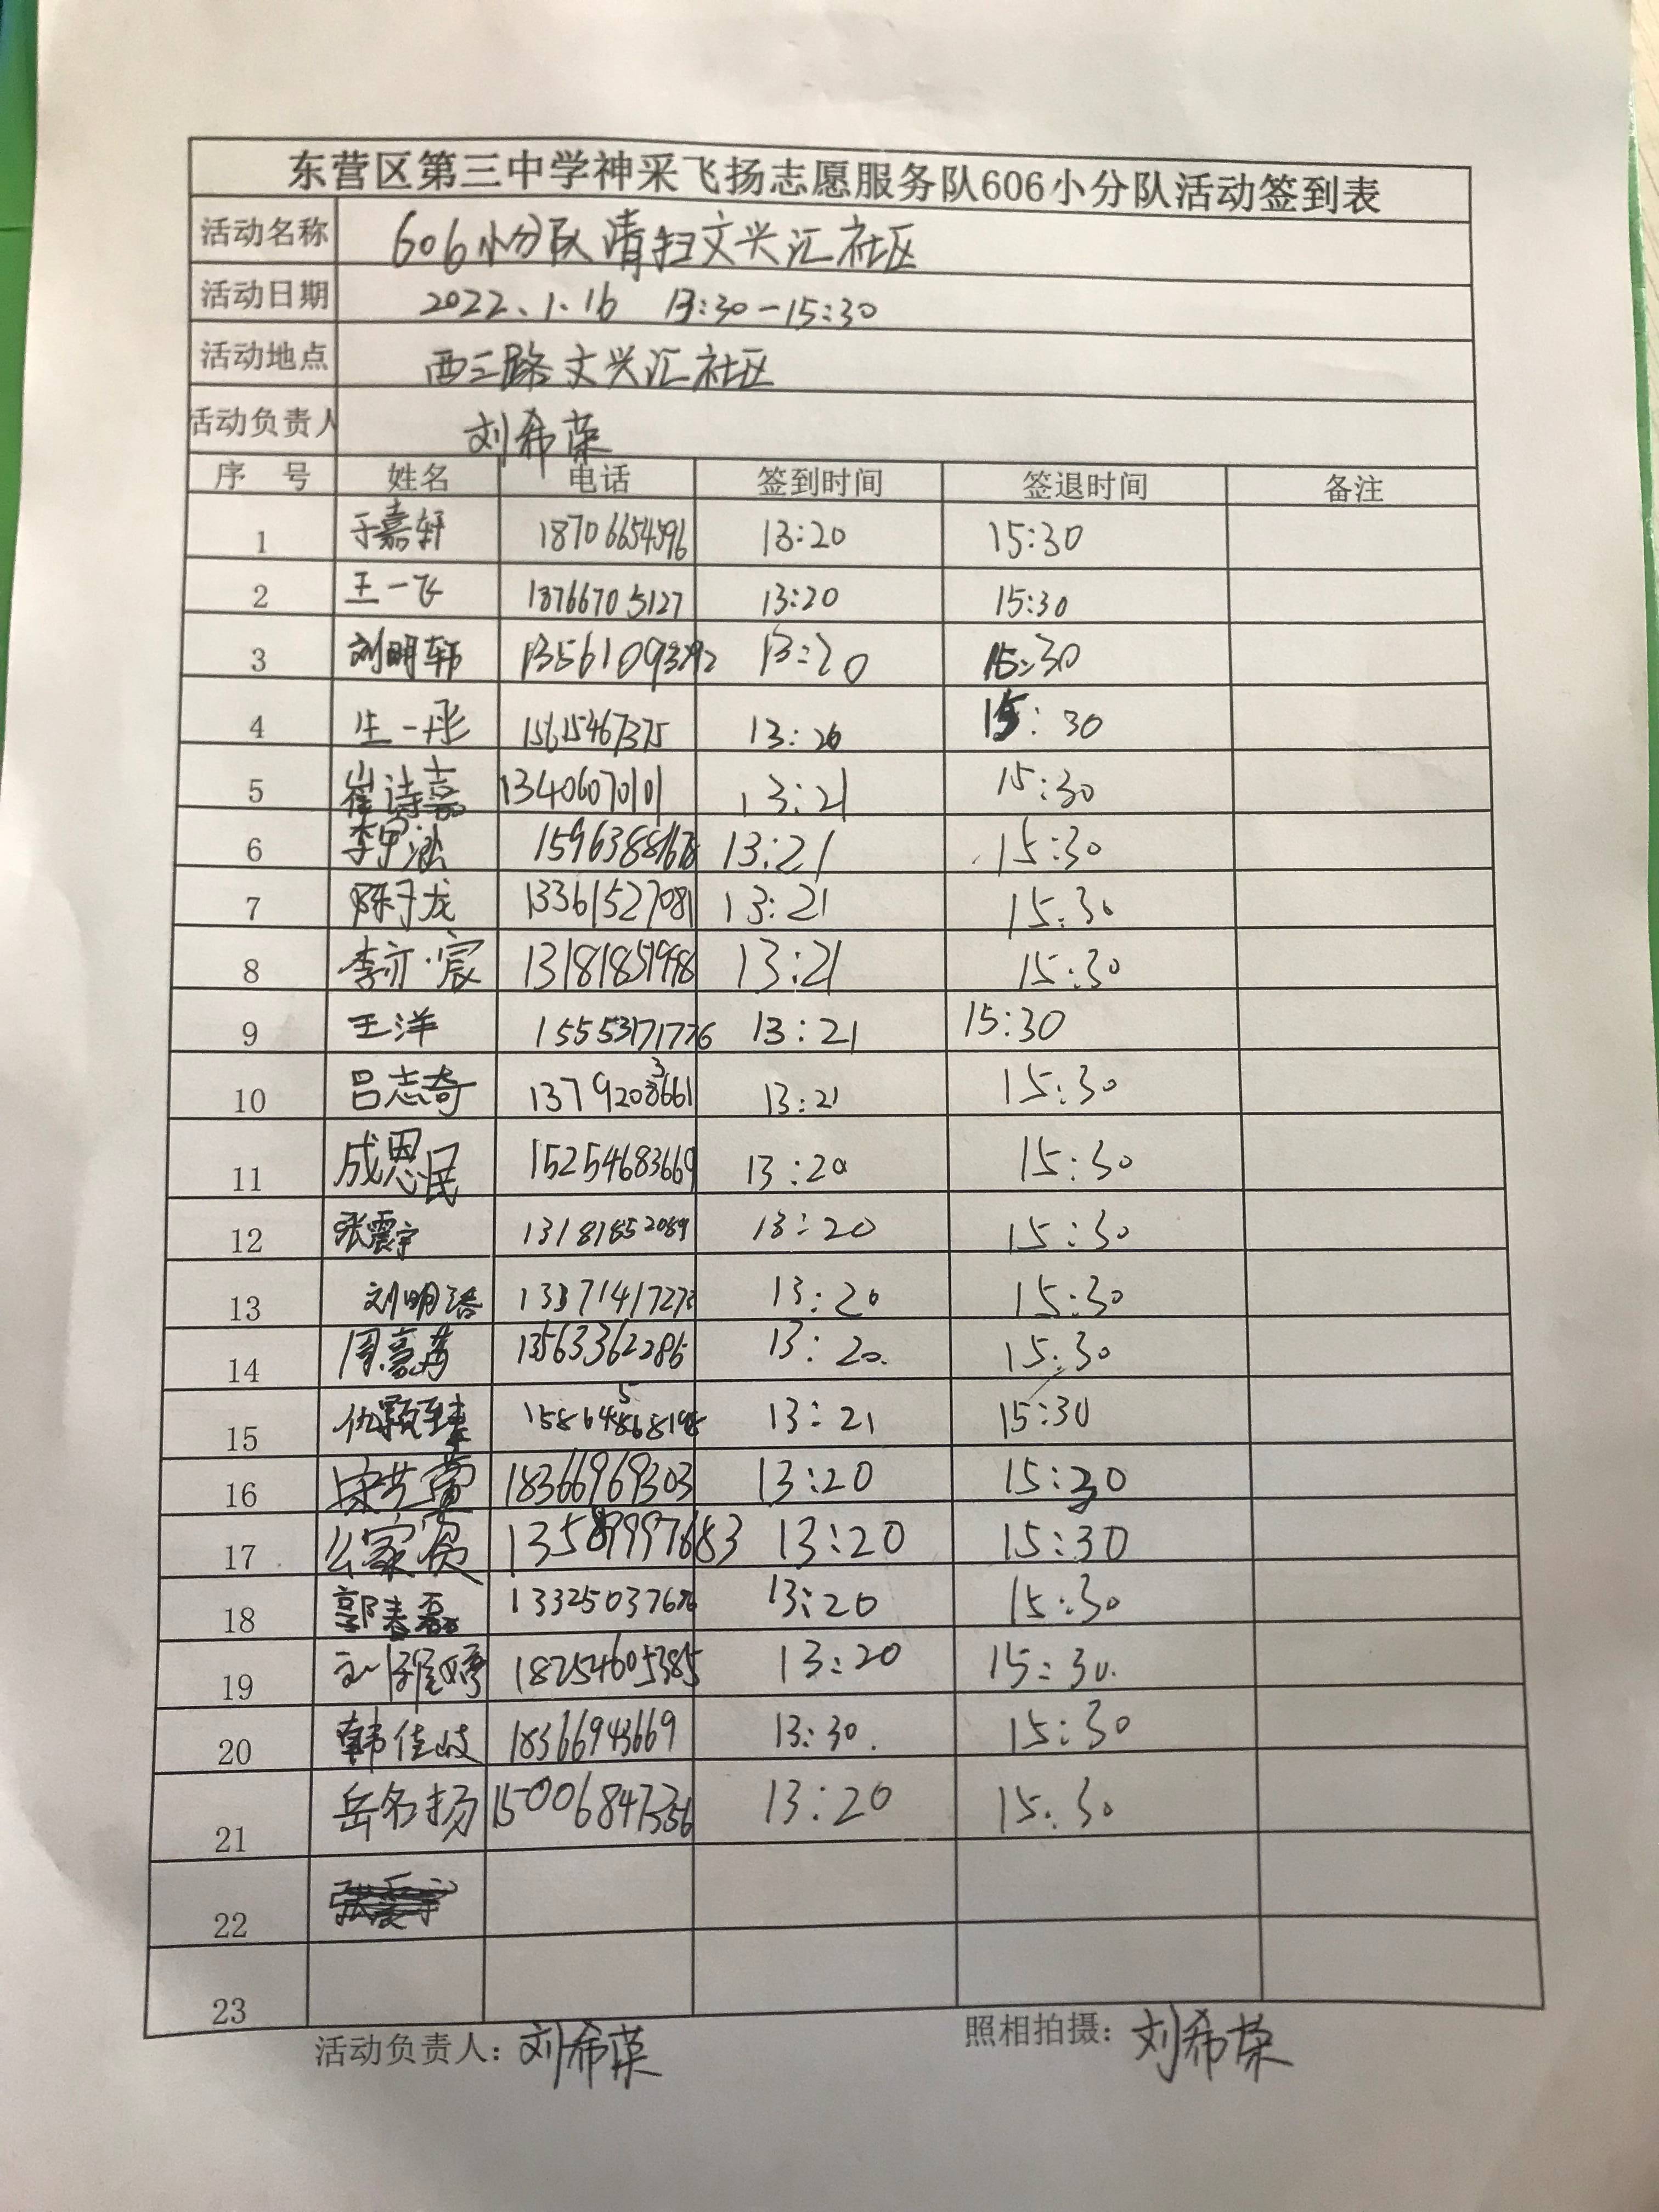 东营区第三中学神采飞扬志愿服务队606小分队活动签到表
活动名称 606小分队清扫文兴汇社区
活动日期 2022.1.16 13:30-15:30
活动地点 西三路文兴汇社区
活动负责人 刘希荣
序 号 姓名 电话 签到时间 签退时间 备注
1 于嘉轩 18706654396 13:20 15:30
2 王一飞 18766705127 13:20 15:30
3 刘明轩 13:20 15:30
4 生一彤 15615467375 13:20 15:30
5 崔诗嘉 13406070101 13:21 15:30
6 13:21 15:30
7 陈子龙 13361527081 13:21 15:30
8 李亦宸 13181851998 13:21 15:30
9 王洋 15553171776 13:21 15:30
10 吕志奇 13:21 15:30
11 成恩民 15254683669 13:20 15:30
12 张震宇 13181852089 13:20 15:30
13 刘明浩 13371417273 13:20 15:30
14 13563362286 13:20 15:30
15 13:21 15:30
16 18366969303 13:20 15:30
17 13589997683 13:20 15:30
18 郭春磊 13325037676 13:20 15:30
19 18254605385 13:20 15:30
20 韩佳岐 18366943669 13:30 15:30
21 岳名扬 15006847356 13:20 15:30
22
23
活动负责人：刘希荣 照相拍摄：刘希荣